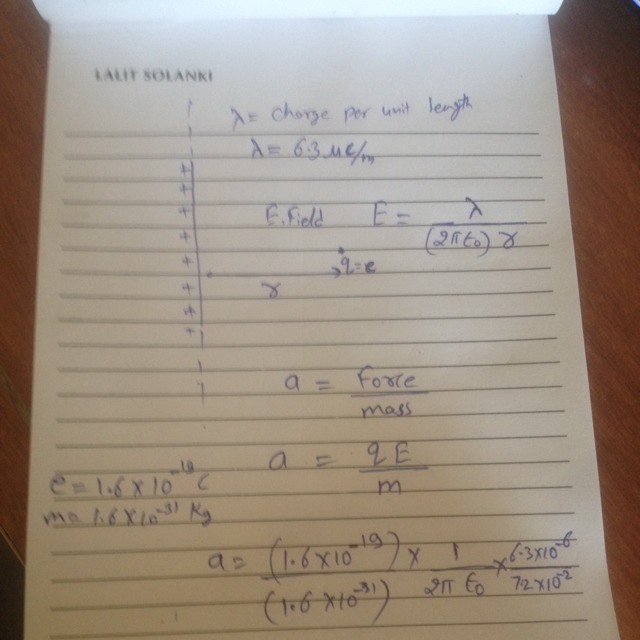 LALIT SOLANKI
λ = charge per unit length
λ = 6.3 μc/m
E. Field E = λ / (2π ε₀) r
q = e
r
a = Force / mass
a = qE / m
e = 1.6 × 10⁻¹⁹ C
m = 1.6 × 10⁻³¹ Kg
a = (1.6 × 10⁻¹⁹) / (1.6 × 10⁻³¹) × 1 / 2π ε₀ × 6.3 × 10⁻⁶ / 7.2 × 10⁻²